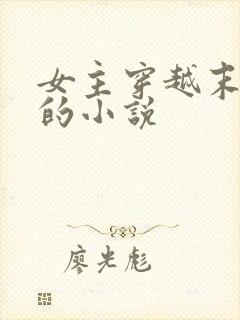 女主穿越末
的小说
廖光彪